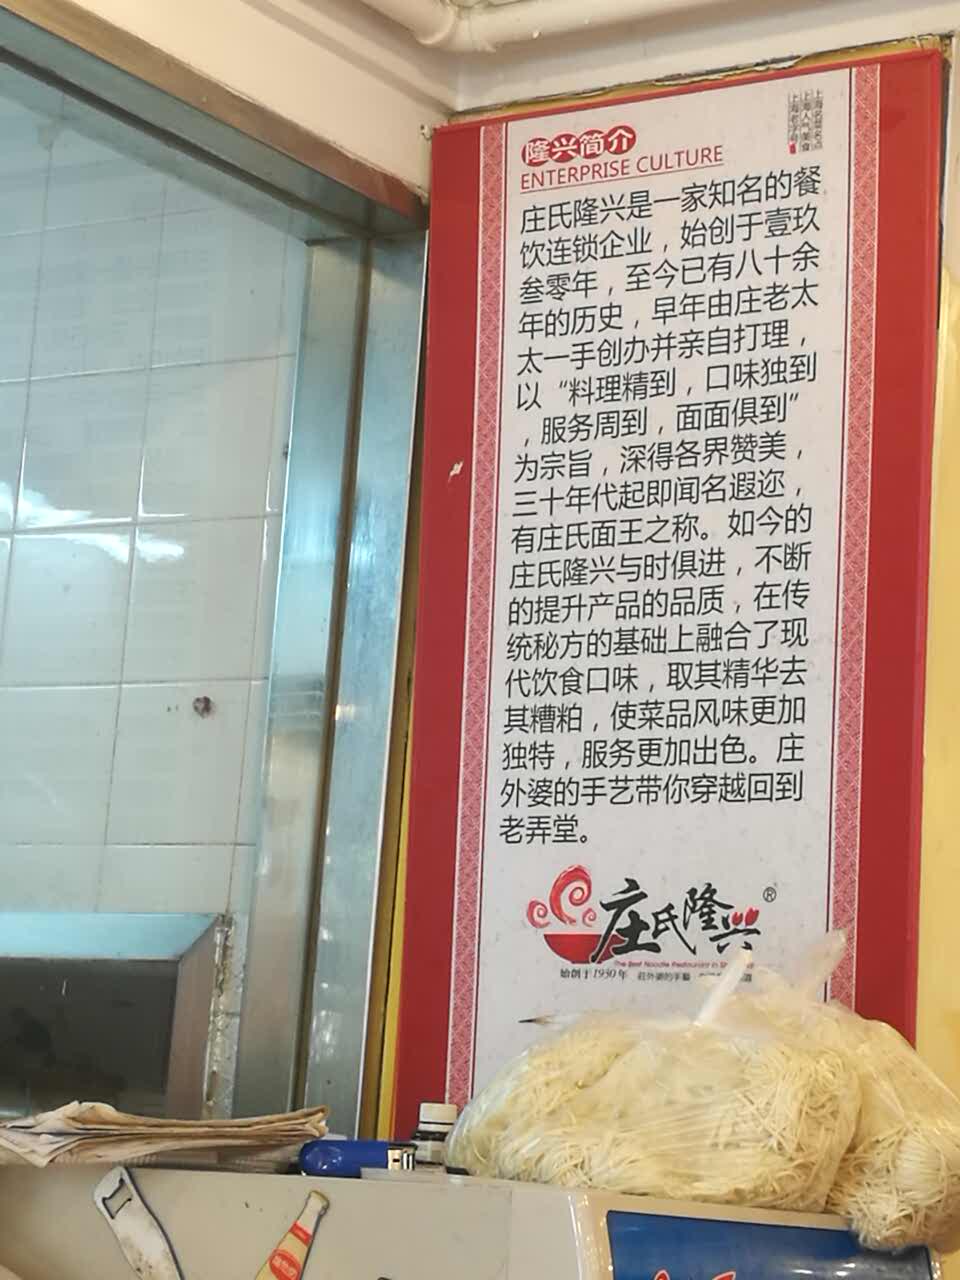 上海名菜名点
上海人气美食
上海老字号
隆兴简介
ENTERPRISE CULTURE
庄氏隆兴是一家知名的餐
饮连锁企业，始创于壹玖
叁零年，至今已有八十余
年的历史，早年由庄老太
太一手创办并亲自打理，
以“料理精到，口味独到
，服务周到，面面俱到”
为宗旨，深得各界赞美，
三十年代起即闻名遐迩，
有庄氏面王之称。如今的
庄氏隆兴与时俱进，不断
的提升产品的品质，在传
统秘方的基础上融合了现
代饮食口味，取其精华去
其糟粕，使菜品风味更加
独特，服务更加出色。庄
外婆的手艺带你穿越回到
老弄堂。
庄氏隆兴®
The Best Noodle Restaurant in
始创于1930年 莊外婆的手藝